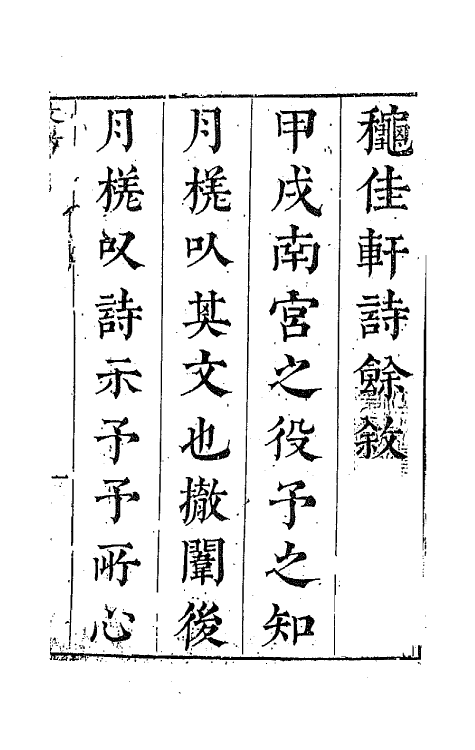 龝佳軒詩餘敘
甲戌南宮之役予之知
月槎以其文也撤闈後
月槎以詩示予予所心